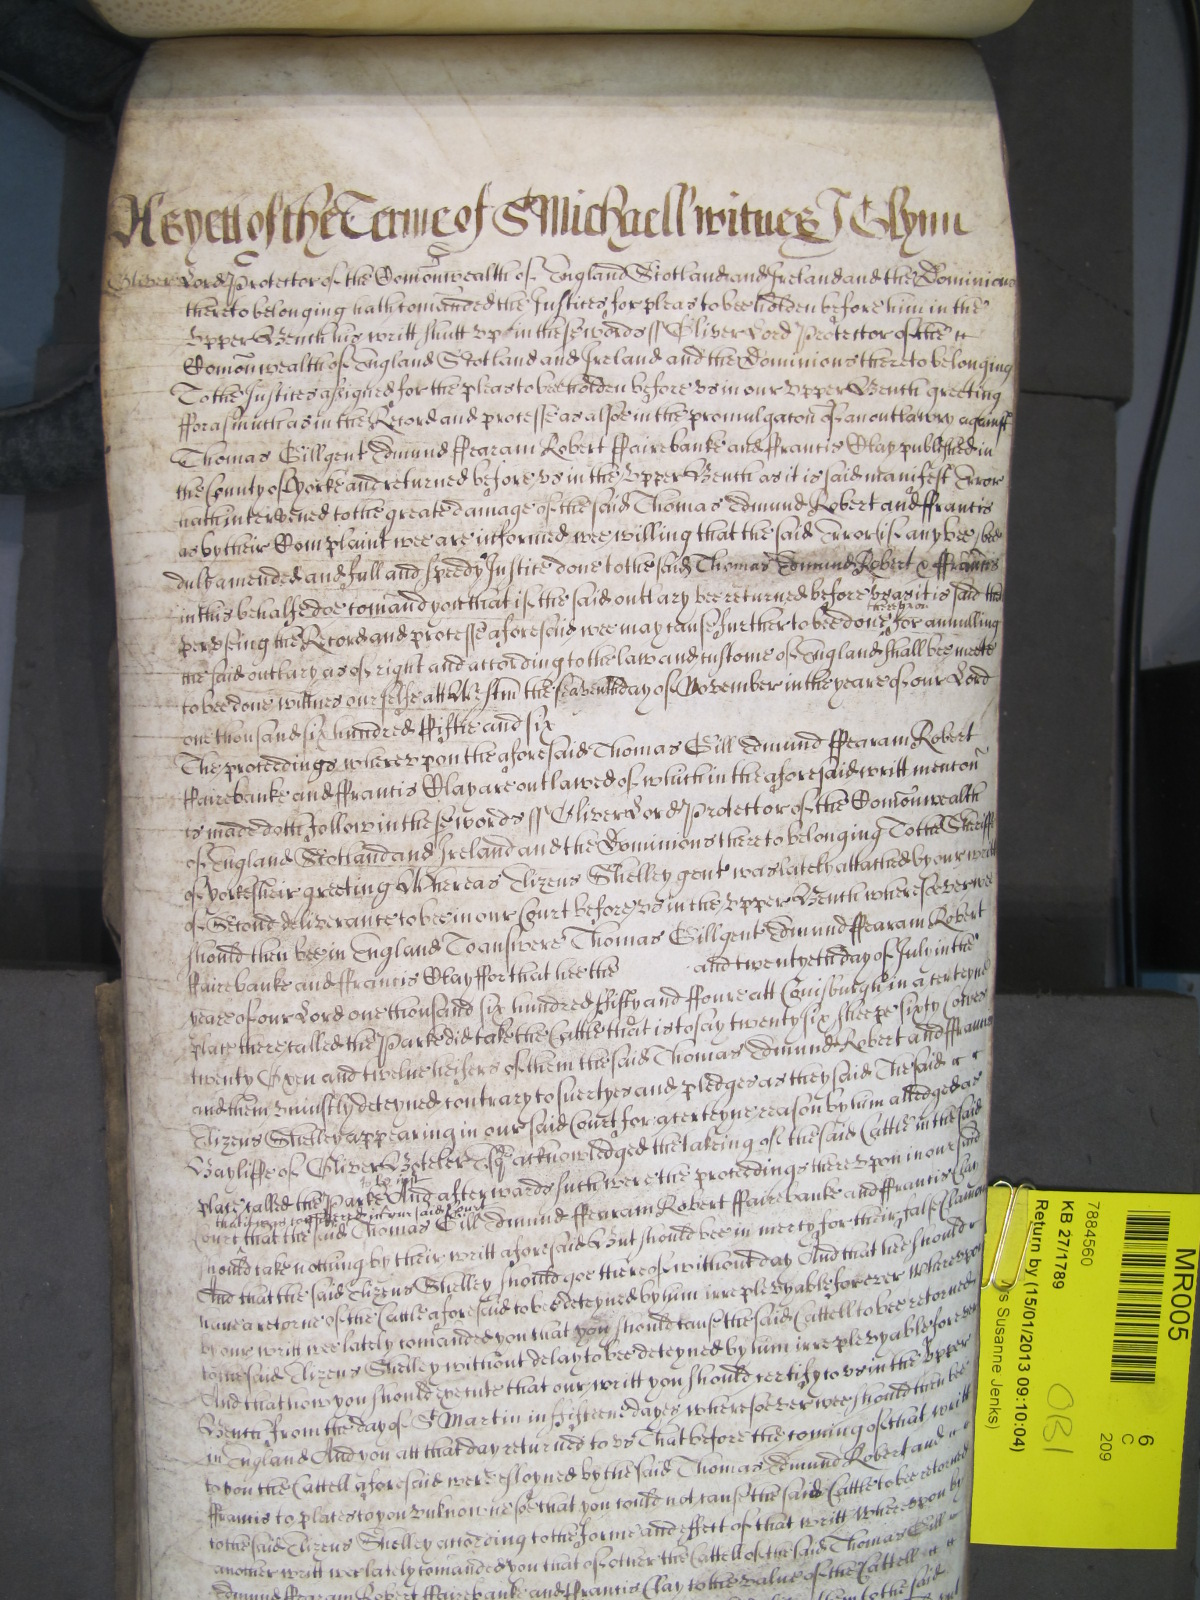 As yett of the Terme of St Michaell witnes J Glynn
Oliver Lord Protector of the Comonwealth of England Scotland and Ireland and the Dominions
thereto belonging hath comanded the Justices for pleas to bee holden before him in the
Upper Bench his writt shutt up in these words // Oliver Lord Protector of the
Comonwealth of England Scotland and Ireland and the Dominions thereto belonging
To the Justices assigned for the pleas to bee holden before us in our Upper Bench greeting
fforasmuch as in the Record and processe as alsoe in the promulgacon of an outlawry against
Thomas Gill gent Edmund ffearam Robert ffairebanke and ffrancis Clay published in
the County of Yorke and returned before us in the Upper Bench as it is said manifest Error
hath intervened to the greate damage of the said Thomas Edmund Robert and ffrancis
as by their Complaint wee are informed wee willing that the said Error if any bee bee
duly amended and full and speedy Justice done to the said Thomas Edmund Robert & ffrancis
in this behalfe doe comand you that if the said outlary bee returned before us as it is said then
peruseing the Record and processe aforesaid wee may cause further to bee done thereupon for annulling
the said outlary as of right and according to the law and custome of England shall bee meete
to bee done witnes our selfe att Westm the seaventh day of November in the yeare of our Lord
one thousand six hundred ffiftie and six
The proceedings whereupon the aforesaid Thomas Gill Edmund ffearam Robert
ffairebanke and ffrancis Clay are outlawed of which in the aforesaid writt mencon
is made doth follow in these words // Oliver Lord Protector of the Comonwealth
of England Scotland and Ireland and the Dominions thereto belonging To the Sheriffe
of Yorkesheir greeting Whereas Elizeus Shelley gent was lately attached by our writt
of Second deliverance to bee in our Court before us in the Upper Bench wheresoever wee
should then bee in England To answere Thomas Gill gent Edmund ffearam Robert
ffairebanke and ffrancis Clay ffor that hee the and twentyeth day of July in the
yeare of our Lord one thousand six hundred ffifty and ffoure att Conisburgh in a certeyne
place there called the Parke did take the Cattle that is to say twenty six sheepe sixty Cowes
twenty Oxen and twelve heifers of them the said Thomas Edmund Robert and ffrancis
and them uniustly deteyned contrary to suertyes and pledges as they said The said
Elizeus Shelley appearing in our said Court for a certeyne reason by him alledged as
Bayliffe of Oliver Boteler Esq acknowledged the takeing of the said Cattle in the said
place called the Parke And afterwards such were the proceedings thereupon in our said
Court that the said Thomas Gill Edmund ffearam Robert ffairebanke and ffrancis Clay
should take nothing by their writt aforesaid But should bee in mercy for their false Clamor
And that the said Elizeus Shelley should goe thereof without day And that hee should
have a retorne of the Cattle aforesaid to bee deteyned by him irreplevyable for ever Whereupon
by our writt wee lately comanded you that you should cause the said Cattell to bee retorned
to the said Elizeus Shelley without delay to bee deteyned by him irreplevyable forever
And that how you should execute that our writt you should certify to us in the Upper
Bench from the day of St Martin in fifteene dayes wheresoever wee should then bee
in England And you att that day returned to us That before the coming of that writt
to you the Cattell aforesaid were esloyned by the said Thomas Edmund Robert and
ffrancis to places to you unknowne soe that you could not cause the said Cattle to bee retorned
to the said Elizeus Shelley according to the forme and effect of that writt Whereupon by
another writt wee lately comanded you that of other the Cattell of the said Thomas Gill
Edmund ffearam Robert ffairebanke and ffrancis Clay to the value of the Cattell
MR005
6
C
209
7884560
KB 27/1789
Return by (15/01/2013 09:10:04)
Susanne Jenks)